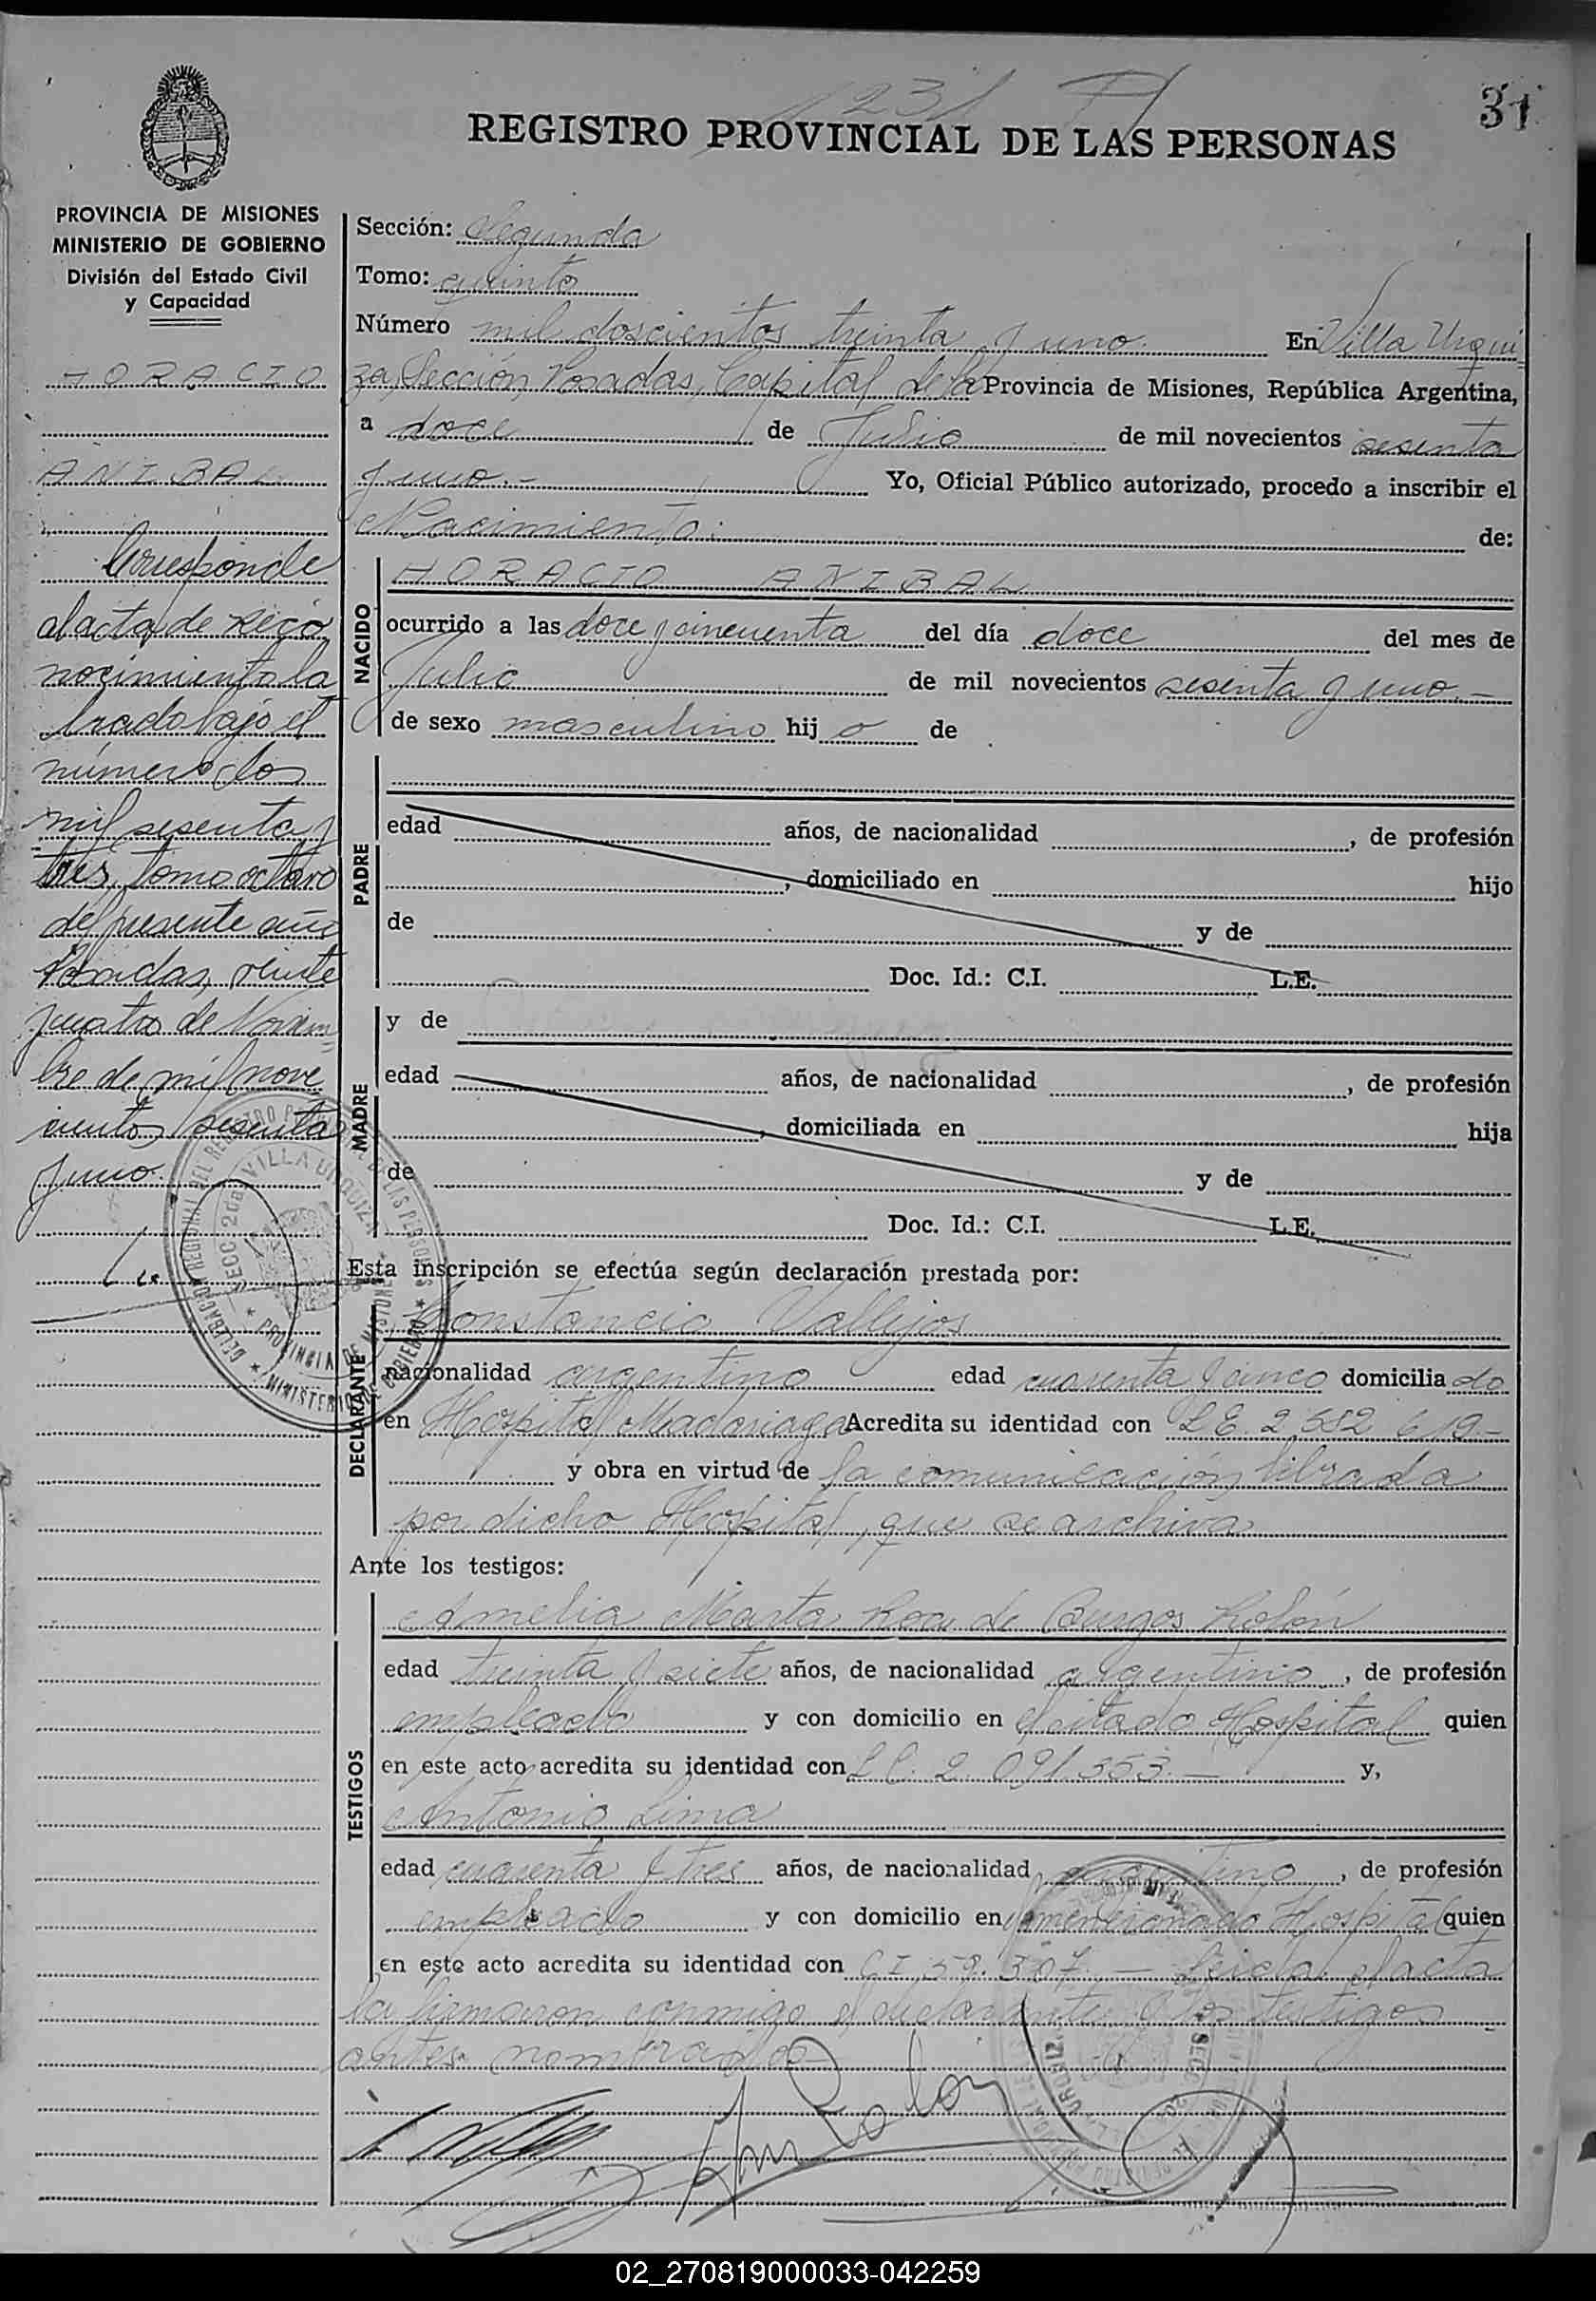 1231
31
REGISTRO PROVINCIAL DE LAS PERSONAS
PROVINCIA DE MISIONES
MINISTERIO DE GOBIERNO
División del Estado Civil
y Capacidad
HORACIO
ANIBAL
Corresponde
al acta de reco
nocimiento la
brado bajo el
número dos
mil sesenta y
tres, tomo octavo
del presente año
Posadas, veinte
y cuatro de Noviem
bre de mil nove
cientos sesenta
y uno.
Sección: Segunda
Tomo: quinto
Número mil doscientos treinta y uno. En Villa Urqui
za, Sección Posadas, Capital de la Provincia de Misiones, República Argentina,
a doce de Julio de mil novecientos sesenta
y uno.- Yo, Oficial Público autorizado, procedo a inscribir el
Nacimiento: de:
NACIDO
HORACIO ANIBAL
ocurrido a las doce y cincuenta del día doce del mes de
Julio de mil novecientos sesenta y uno.-
de sexo masculino hijo de
PADRE
edad años, de nacionalidad , de profesión
, domiciliado en hijo
de y de
Doc. Id.: C.I. L.E.
MADRE
y de
edad años, de nacionalidad , de profesión
, domiciliada en hija
de y de
Doc. Id.: C.I. L.E.
Esta inscripción se efectúa según declaración prestada por:
DECLARANTE
Constancio Vallejos
nacionalidad argentino edad cuarenta y cinco domiciliado
en Hospital Madariaga Acredita su identidad con L E. 2.552 619.-
y obra en virtud de la comunicación librada
por dicho Hospital, que se archiva
Ante los testigos:
TESTIGOS
Amelia Marta Roa de Burgos Rolón
edad treinta y siete años, de nacionalidad argentino, de profesión
empleado y con domicilio en el citado Hospital quien
en este acto acredita su identidad con L C. 2.091.353.- y,
Antonio Lima
edad cuarenta y tres años, de nacionalidad argentino, de profesión
empleado y con domicilio en el mencionado Hospital quien
en este acto acredita su identidad con C I 59.307.- Leida el acta
la firmaron conmigo el declarante y los testigos
antes nombrados
DELEGACION REGIONAL DEL REGISTRO PROVINCIAL DE LAS PERSONAS
SECC 2da VILLA URQUIZA
PROVINCIA DE MISIONES
MINISTERIO DE GOBIERNO
02_270819000033-042259